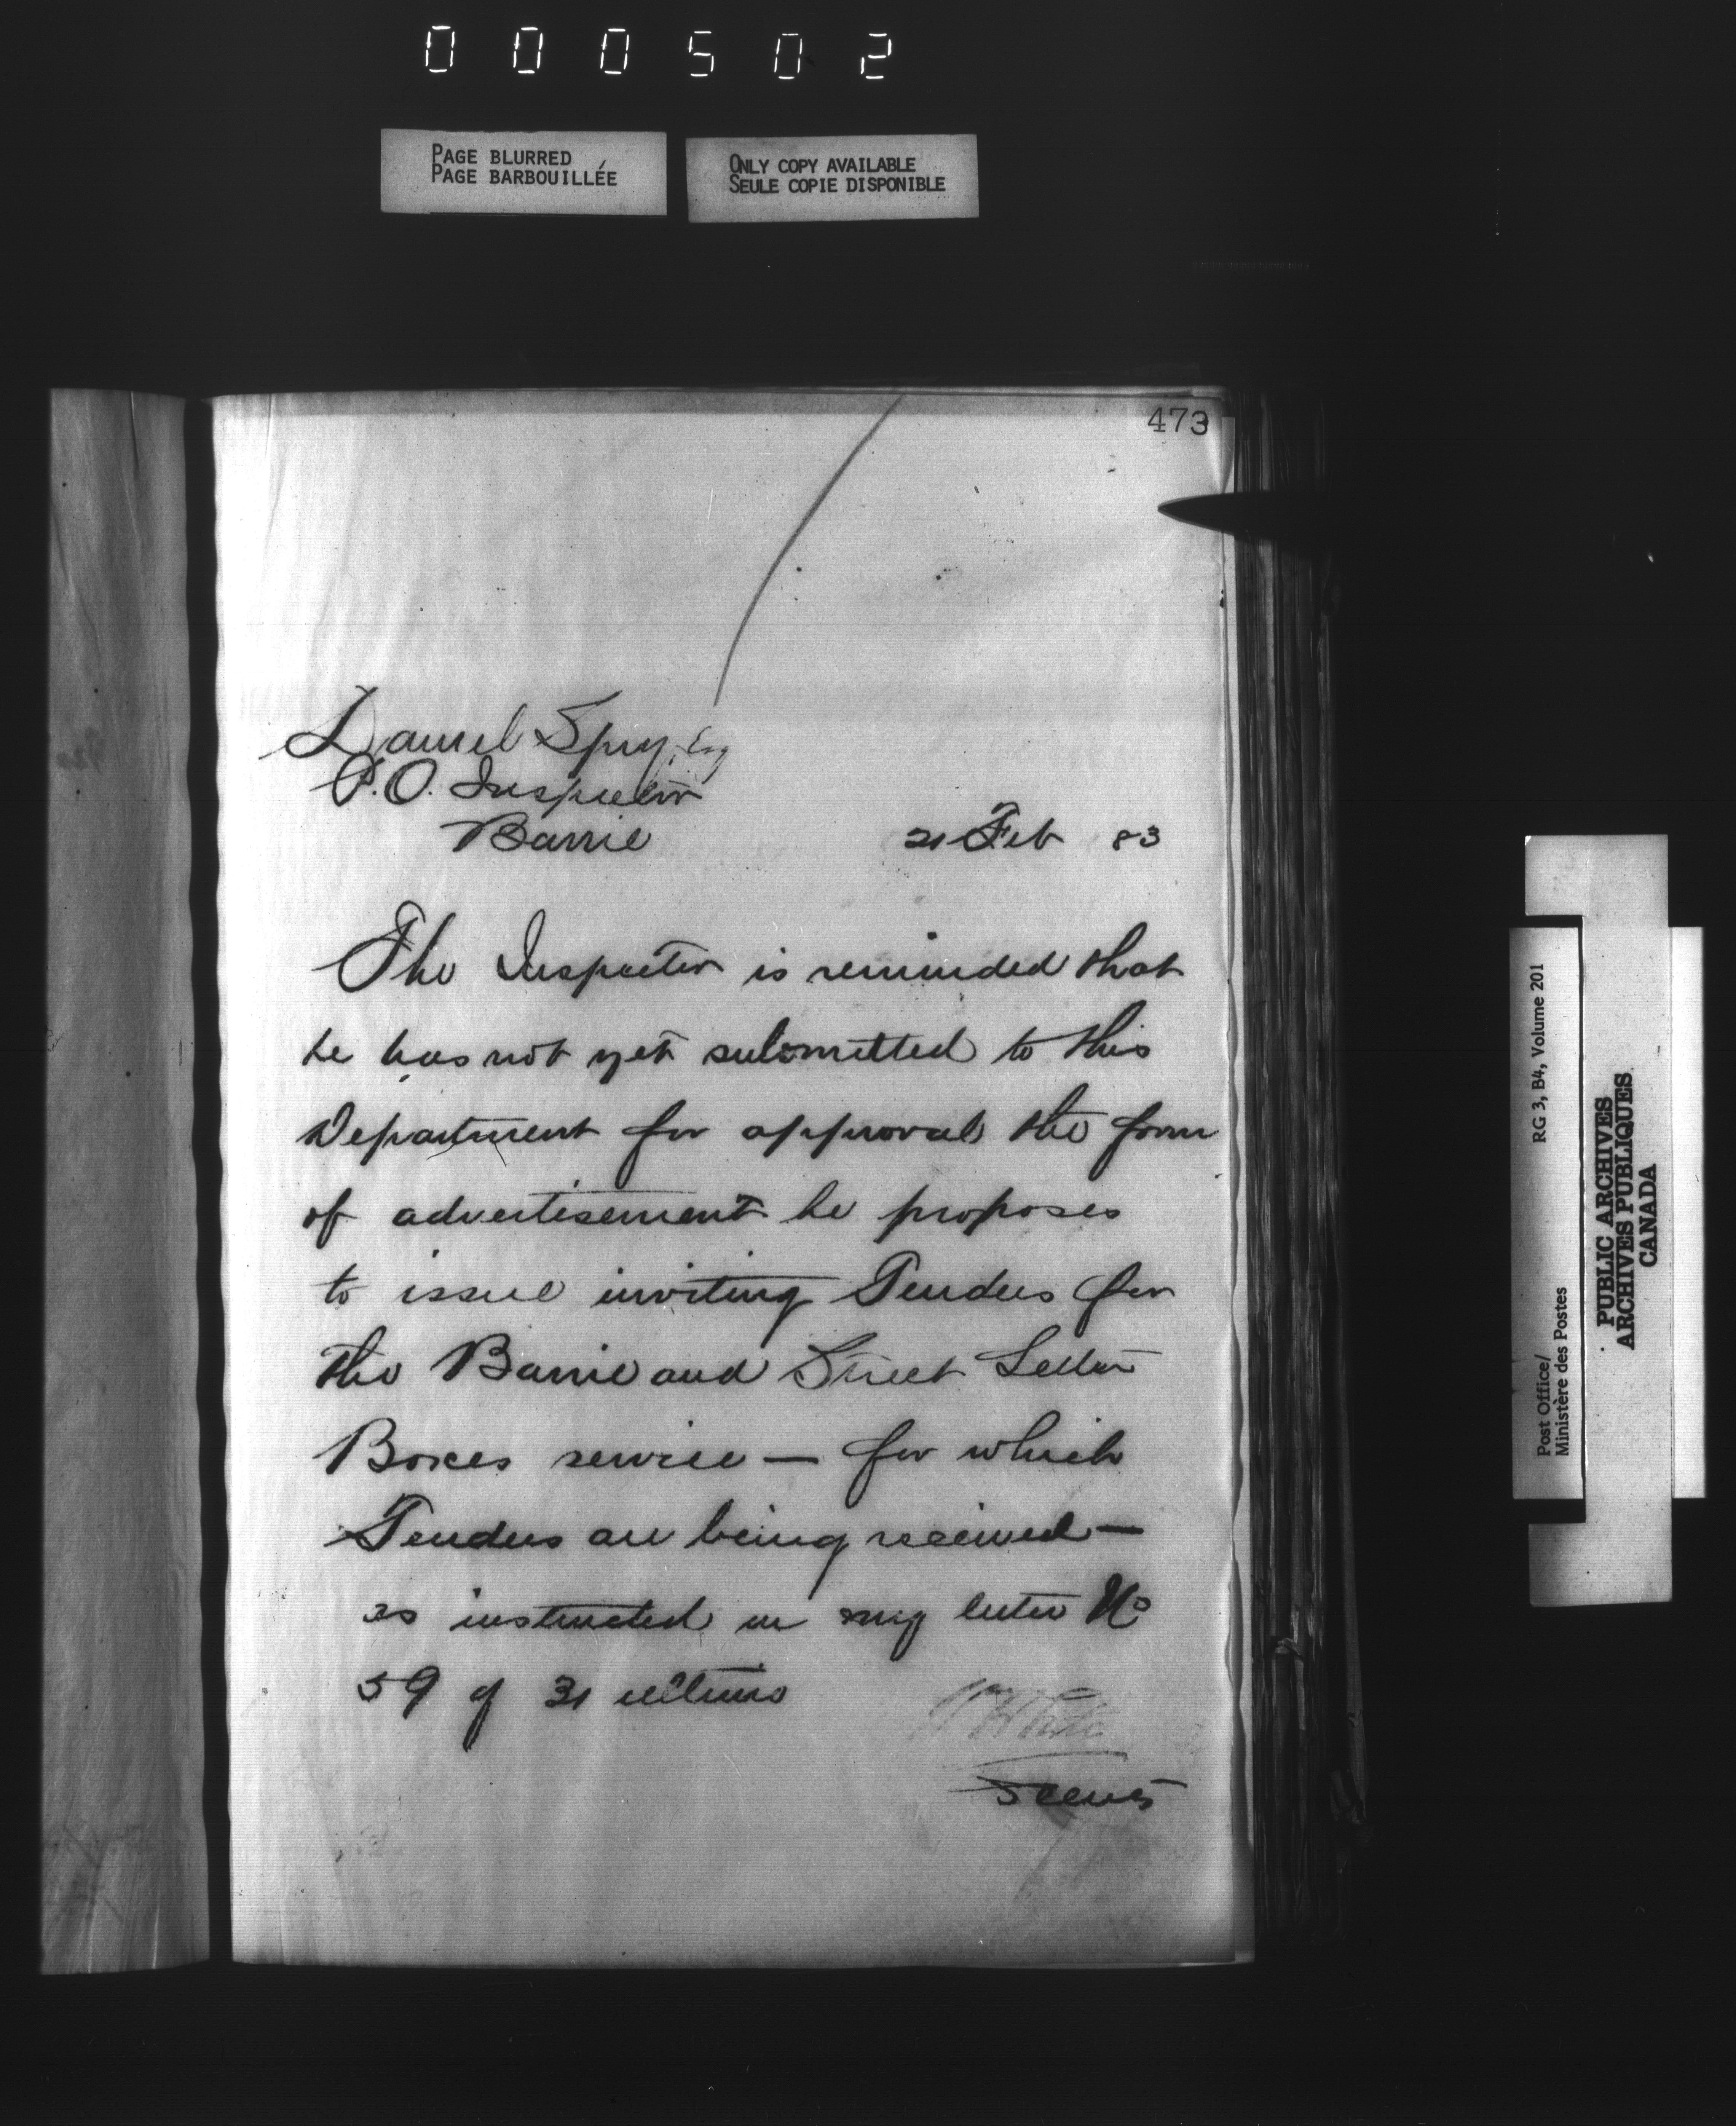 000502
PAGE BLURRED
PAGE BARBOUILLÉE
ONLY COPY AVAILABLE
SEULE COPIE DISPONIBLE
473
Daniel Spry, Esq
P.O. Inspector
Barrie
21 Feb 83
The Inspector is reminded that
he has not yet submitted to this
Department for approval the form
of advertisement he proposes
to issue inviting Tenders for
the Barrie and Street Letter
Boxes service — for which
Tenders are being received —
as instructed in my letter No
59 of 31 ultimo
White
Secrety
RG 3, B4, Volume 201
Post Office/
Ministère des Postes
PUBLIC ARCHIVES
ARCHIVES PUBLIQUES
CANADA